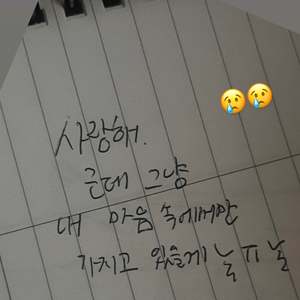 사랑해.
근데 그냥
내 마음 속에서만
가지고 있을게 널 ㅠ 널